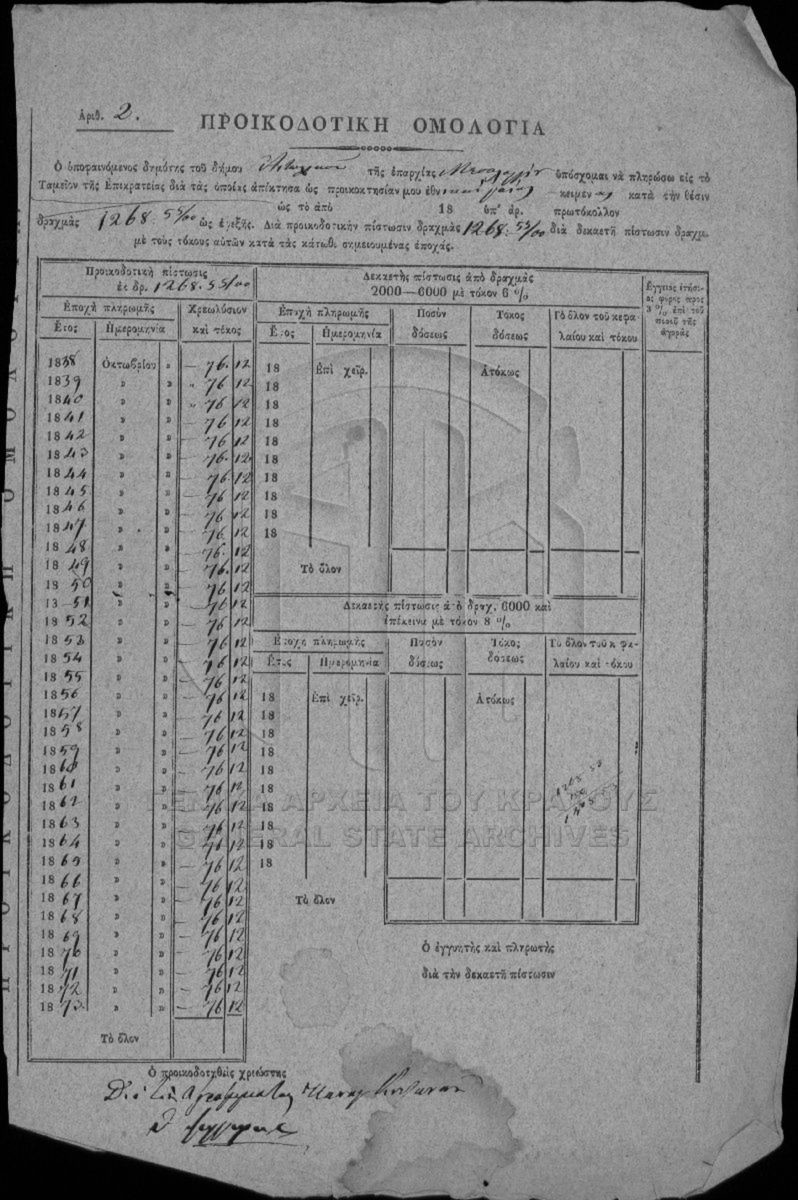 Αριθ. 2.
ΠΡΟΙΚΟΔΟΤΙΚΗ ΟΜΟΛΟΓΙΑ
Ο ὑποφαινόμενος δημότης τοῦ δήμου τῆς ἐπαρχίας ὑπόσχομαι νὰ πληρώσω εἰς τὸ
Ταμεῖον τῆς Επικρατείας διὰ τὰς ὁποίας ἀπέκτησα ὡς προικοκτησίαν μου ἐθν κειμεν ας κατὰ τὴν θέσιν
ὡς τὸ ἀπὸ 18 ὑπ' ἀρ. πρωτόκολλον
δραχμὰς 1268. 55/00 ὡς ἑξῆς. Διὰ προικοδοτικὴν πίστωσιν δραχμὰς 1268. 55/00 διὰ δεκαετῆ πίστωσιν δραχμ.
μὲ τοὺς τόκους αὐτῶν κατὰ τὰς κάτωθι σημειουμένας ἐποχάς.
Προικοδοτικὴ πίστωσις
ἐκ δρ. 1268. 55/00
Εποχὴ πληρωμῆς Χρεωλύσιον
Ετος Ημερομηνία καὶ τόκος
1838 Οκτωβρίου » 76. 12
1839 » » 76 12
1840 » » 76 12
1841 » » 76 12
1842 » » 76 12
1843 » » 76. 12
1844 » » 76 12
1845 » » 76 12
1846 » » 76 12
1847 » » 76 12
1848 » » 76. 12
1849 » » 76. 12
1850 » » 76 12
1851 » » 76 12
1852 » » 76 12
1853 » » 76 12
1854 » » 76 12
1855 » » 76 12
1856 » » 76 12
1857 » » 76 12
1858 » » 76 12
1859 » » 76 12
1860 » » 76 12
1861 » » 76 12
1862 » » 76 12
1863 » » 76 12
1864 » » 76 12
1865 » » 76 12
1866 » » 76 12
1867 » » 76 12
1868 » » 76 12
1869 » » 76 12
1870 » » 76 12
1871 » » 76 12
1872 » » 76 12
1873 » » 76 12
Τὸ ὅλον
Δεκαετὴς πίστωσις ἀπὸ δραχμὰς
2000—6000 μὲ τόκον 6 %
Εποχὴ πληρωμῆς Ποσὸν Τόκος Τὸ ὅλον τοῦ κεφα-
Ετος Ημερομηνία δόσεως δόσεως λαίου καὶ τόκου
18 Επὶ χεῖρ. Ατόκως
18
18
18
18
18
18
18
18
18
Τὸ ὅλον
Δεκαετὴς πίστωσις ἀπὸ δραχ. 6000 καὶ
ἐπέκεινα μὲ τόκον 8 %
Εποχὴ πληρωμῆς Ποσὸν Τόκος Τὸ ὅλον τοῦ κεφα-
Ετος Ημερομηνία δόσεως δόσεως λαίου καὶ τόκου
18 Επὶ χεῖρ. Ατόκως
18
18
18
18
18
18
18
18
18
Τὸ ὅλον
Εγγειος ἐτήσι-
ος φόρος πρὸς
3 % ἐπὶ τοῦ
ποσοῦ τῆς
ἀγορᾶς
ΓΕΝΙΚΑ ΑΡΧΕΙΑ ΤΟΥ ΚΡΑΤΟΥΣ
GENERAL STATE ARCHIVES
Ο ἐγγυητὴς καὶ πληρωτὴς
διὰ τὴν δεκαετῆ πίστωσιν
Ο προικοδοτηθεὶς χρεώστης